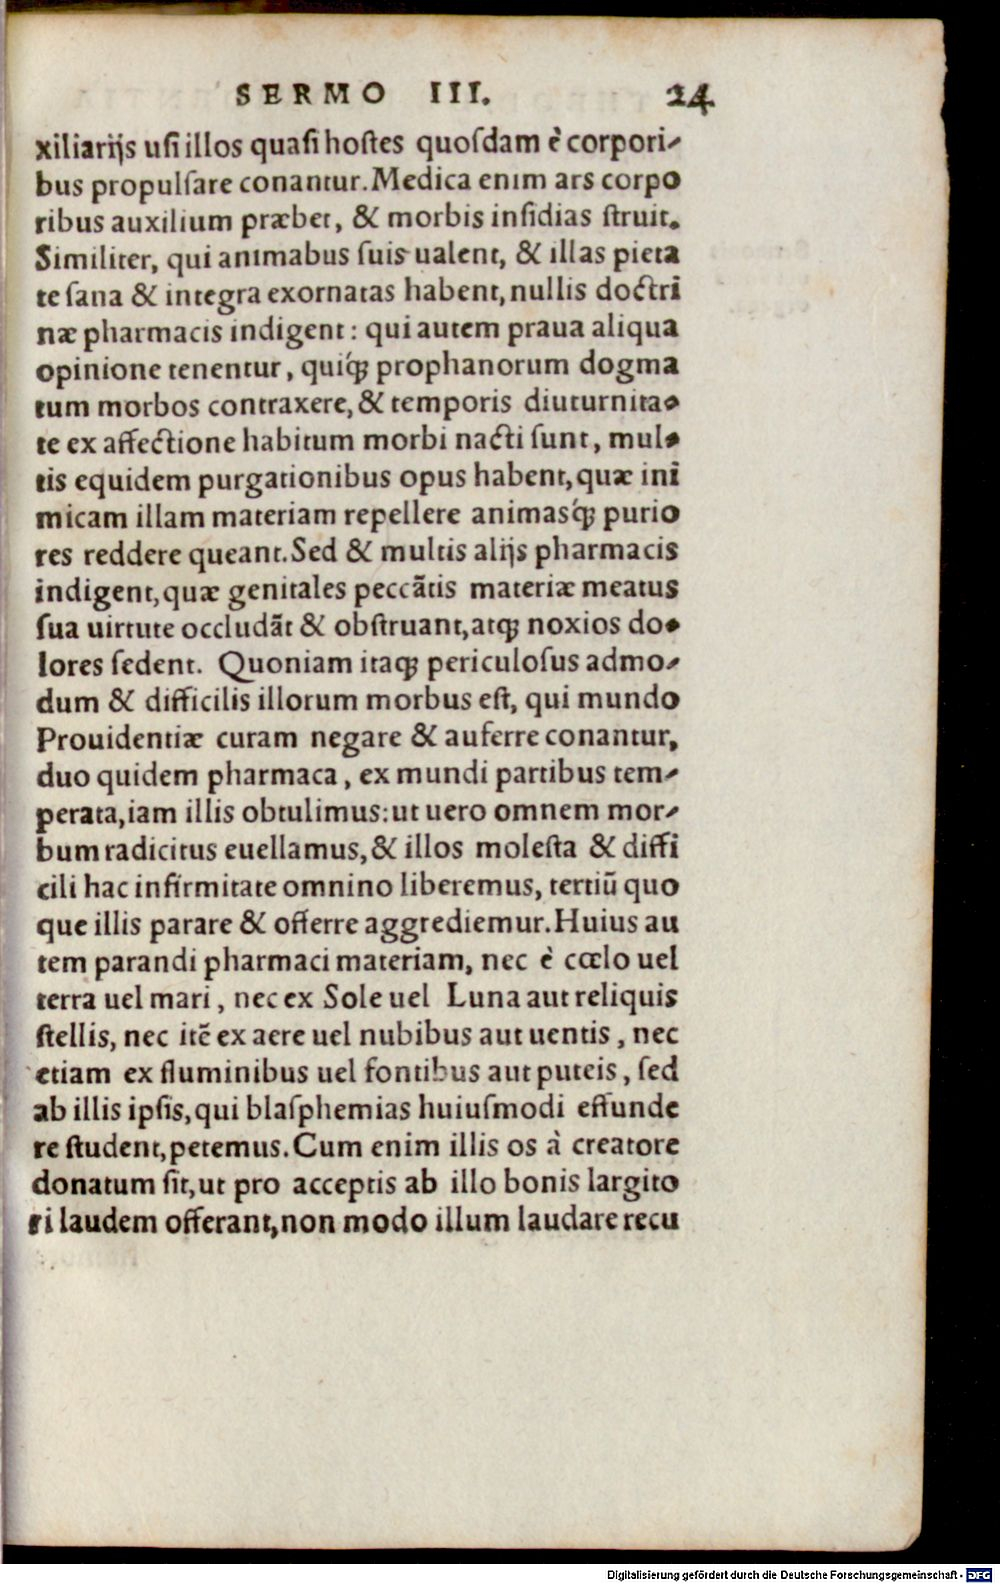 SERMO III. 24
xiliarijs usi illos quasi hostes quosdam è corpori-
bus propulsare conantur. Medica enim ars corpo
ribus auxilium præbet, & morbis insidias struit.
Similiter, qui animabus suis ualent, & illas pieta
te sana & integra exornatas habent, nullis doctri
næ pharmacis indigent: qui autem praua aliqua
opinione tenentur, quiq́; prophanorum dogma
tum morbos contraxere, & temporis diuturnita-
te ex affectione habitum morbi nacti sunt, mul-
tis equidem purgationibus opus habent, quæ ini
micam illam materiam repellere animasq́; purio
res reddere queant. Sed & multis alijs pharmacis
indigent, quæ genitales peccãtis materiæ meatus
sua uirtute occludãt & obstruant, atq; noxios do-
lores sedent. Quoniam itaq; periculosus admo-
dum & difficilis illorum morbus est, qui mundo
Prouidentiæ curam negare & auferre conantur,
duo quidem pharmaca, ex mundi partibus tem-
perata, iam illis obtulimus: ut uero omnem mor-
bum radicitus euellamus, & illos molesta & diffi
cili hac infirmitate omnino liberemus, tertiũ quo
que illis parare & offerre aggrediemur. Huius au
tem parandi pharmaci materiam, nec è cœlo uel
terra uel mari, nec ex Sole uel Luna aut reliquis
stellis, nec itẽ ex aere uel nubibus aut uentis, nec
etiam ex fluminibus uel fontibus aut puteis, sed
ab illis ipsis, qui blasphemias huiusmodi effunde
re student, petemus. Cum enim illis os à creatore
donatum sit, ut pro acceptis ab illo bonis largito
ri laudem offerant, non modo illum laudare recu
Digitalisierung gefördert durch die Deutsche Forschungsgemeinschaft - DFG